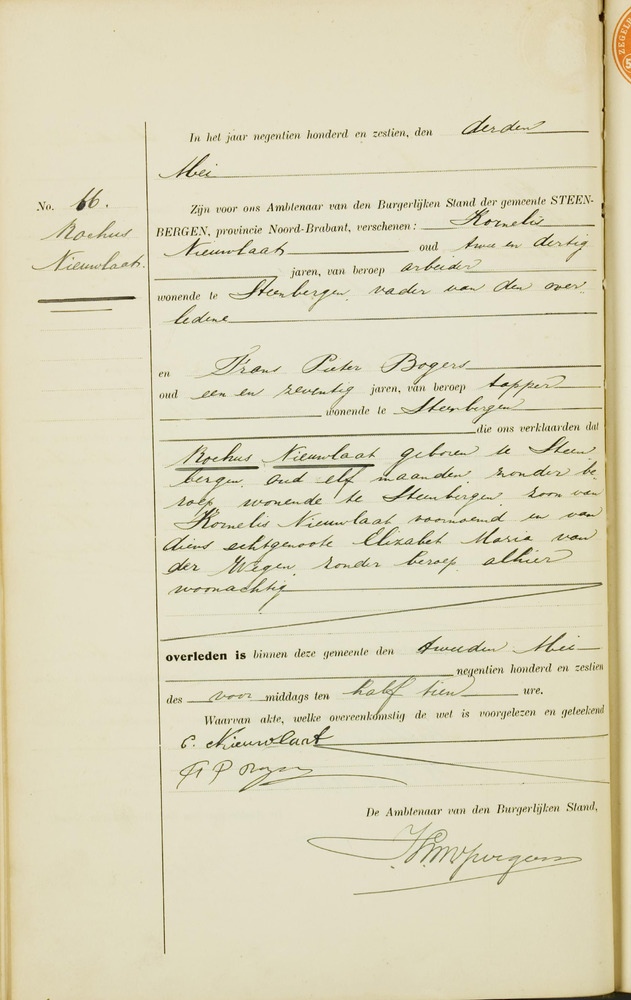 ZEGEL
In het jaar negentien honderd en zestien, den derden
Mei
No. 66.
Rochus
Nieuwlaat.
Zijn voor ons Ambtenaar van den Burgerlijken Stand der gemeente STEEN-
BERGEN, provincie Noord-Brabant, verschenen: Kornelis
Nieuwlaat oud twee en dertig
jaren, van beroep arbeider
wonende te Steenbergen, vader van den over
ledene
en Frans Pieter Bogers
oud een en zeventig jaren, van beroep tapper
wonende te Steenbergen
die ons verklaarden dat
Rochus Nieuwlaat geboren te Steen
bergen, oud elf maanden, zonder be
roep wonende te Steenbergen zoon van
Kornelis Nieuwlaat voornoemd en van
diens echtgenoote Elizabet Maria van
der Wegen zonder beroep, alhier
woonachtig
overleden is binnen deze gemeente den tweeden Mei
negentien honderd en zestien
des voor middags ten half tien ure.
Waarvan akte, welke overeenkomstig de wet is voorgelezen en geteekend
C. Nieuwlaat
De Ambtenaar van den Burgerlijken Stand,